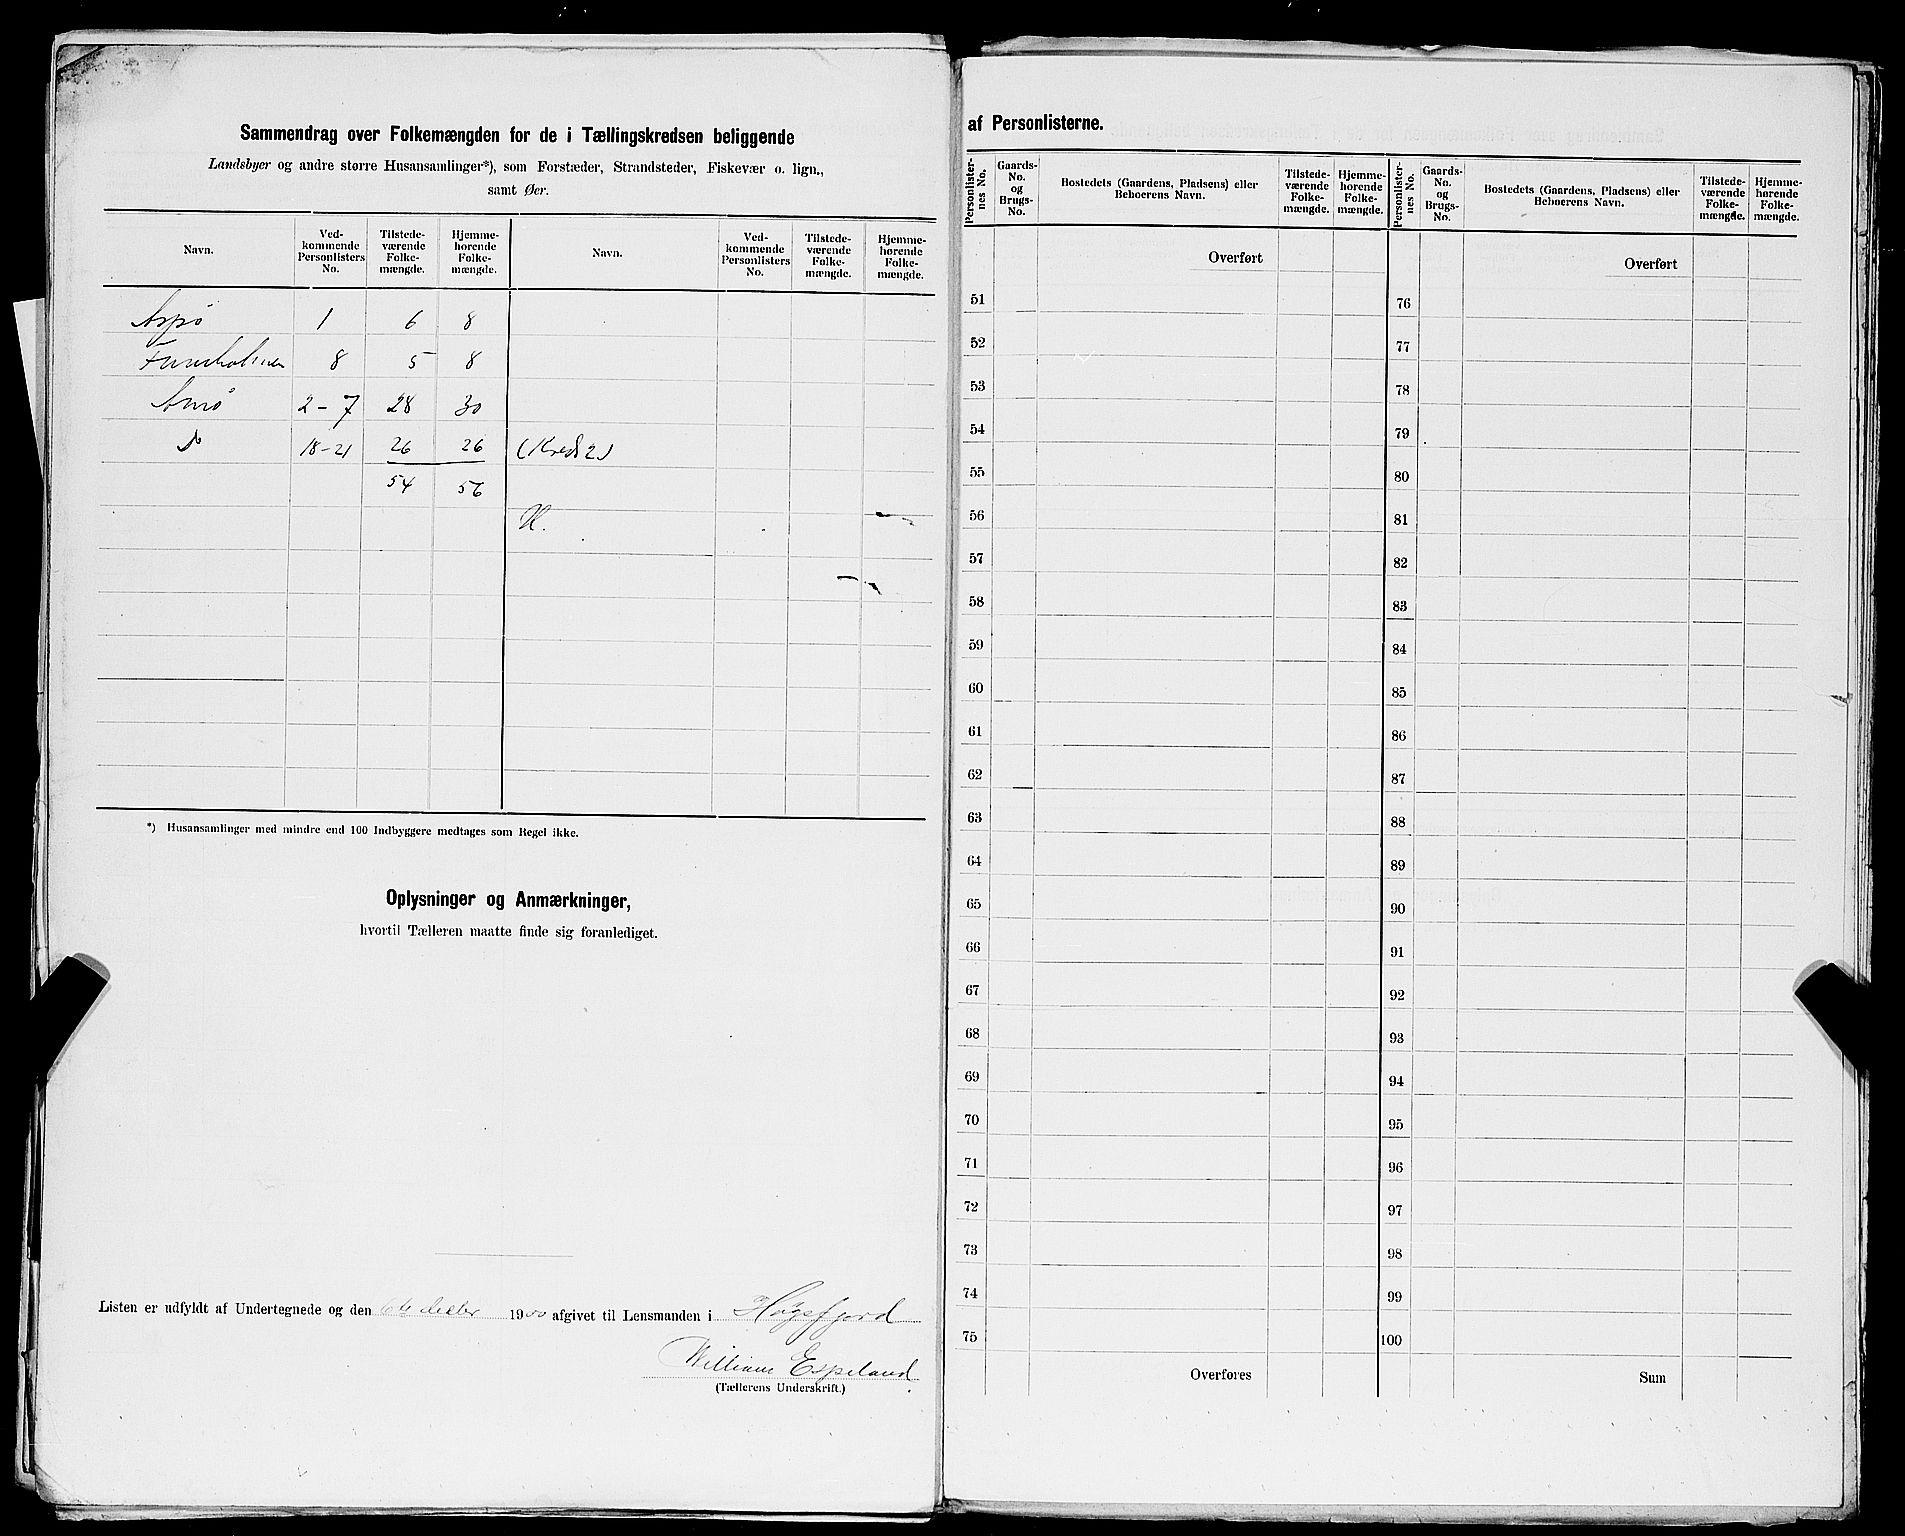 Sammendrag over Folkemængden for de i Tællingskredsen beliggende
Landsbyer og andre større Husansamlinger*), som Forstæder, Strandsteder, Fiskevær o. lign.,
samt Øer.
Navn. Ved-kommende Personlisters No. Tilstede-værende Folke-mængde. Hjemme-hørende Folke-mængde. Navn. Ved-kommende Personlisters No. Tilstede-værende Folke-mængde. Hjemme-hørende Folke-mængde.
Aspö 1 6 8
8 5 8
Amö 2-7 28 30
18-21 26 26 (Kreds 2)
54 56
*) Husansamlinger med mindre end 100 Indbyggere medtages som Regel ikke.
Oplysninger og Anmærkninger,
hvortil Tælleren maatte finde sig foranlediget.
Listen er udfyldt af Undertegnede og den 6te decbr 1900 afgivet til Lensmanden i Høgsfjord
William Espeland.
(Tællerens Underskrift.)
af Personlisterne.
Personlister-nes No. Gaards-No. og Brugs-No. Bostedets (Gaardens, Pladsens) eller Beboerens Navn. Tilstede-værende Folke-mængde. Hjemme-hørende Folke-mængde. Personlister-nes No. Gaards-No. og Brugs-No. Bostedets (Gaardens, Pladsens) eller Beboerens Navn. Tilstede-værende Folke-mængde. Hjemme-hørende Folke-mængde.
Overført Overført
51 76
52 77
53 78
54 79
55 80
56 81
57 82
58 83
59 84
60 85
61 86
62 87
63 88
64 89
65 90
66 91
67 92
68 93
69 94
70 95
71 96
72 97
73 98
74 99
75 100
Overføres Sum